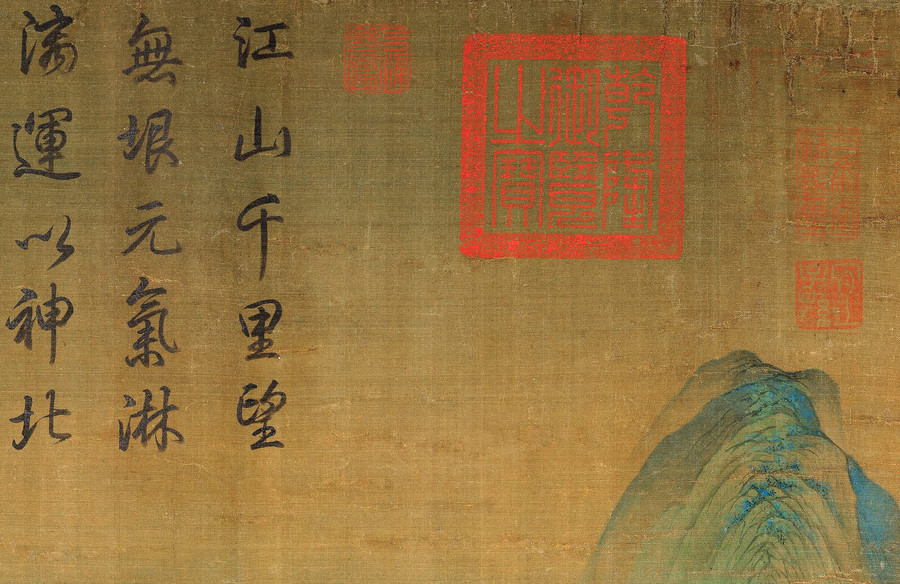 乾隆
御覽
之寶
江山千里望
無垠元氣淋
漓運以神北